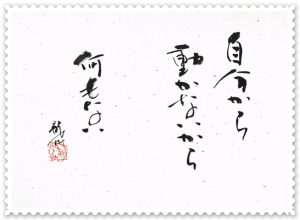 自分から
動かないから
何もない